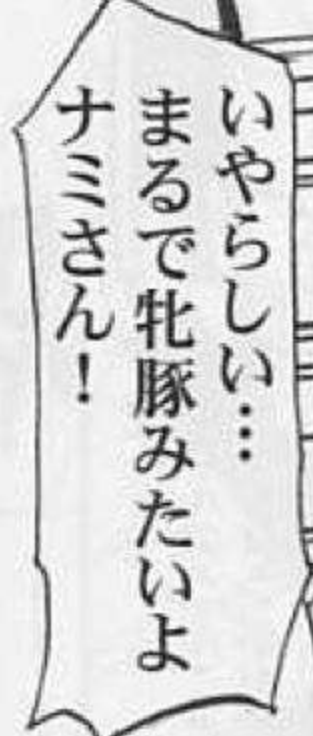 いやらしい…
まるで牝豚みたいよ
ナミさん！